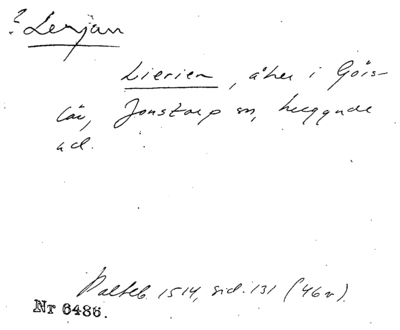 ? Lerjan
Lierien, åker i Göis-
löv, Jonstorp sn, Luggude
hd.
Dalteb. 1514, sid. 131 (46v).
Nr 6486.